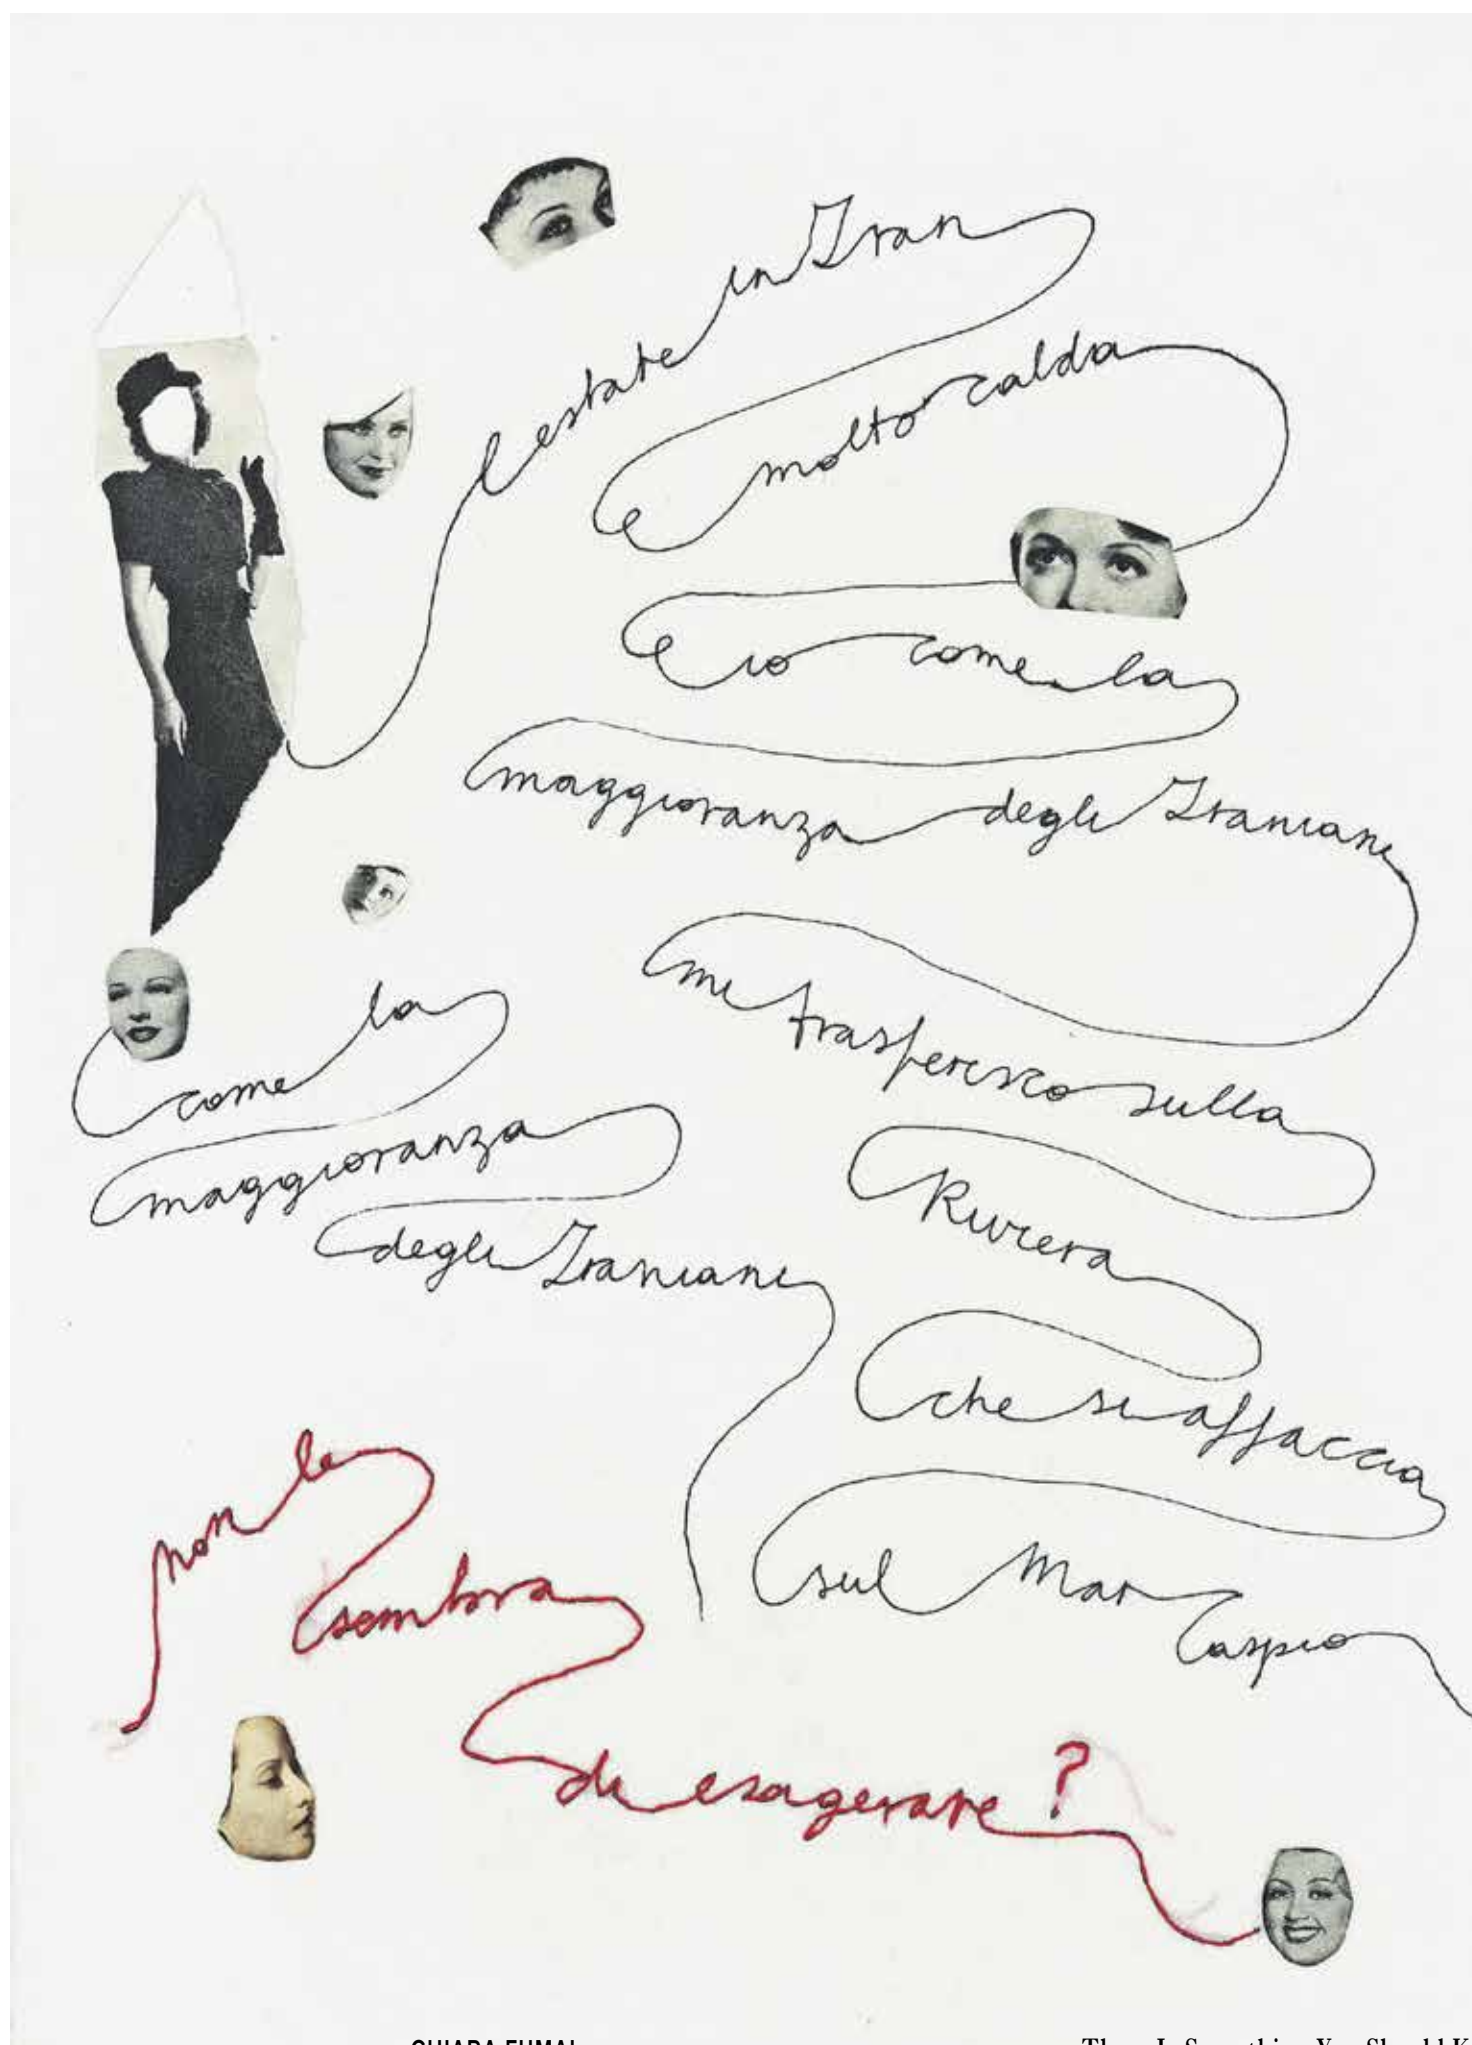 l estate in Iran
e molto calda
e io come la
maggioranza degli Iraniani
mi trasferisco sulla
Riviera
che si affaccia
sul Mar
Caspio
come la
maggioranza
degli Iraniani
non le
sembra
di esagerare?